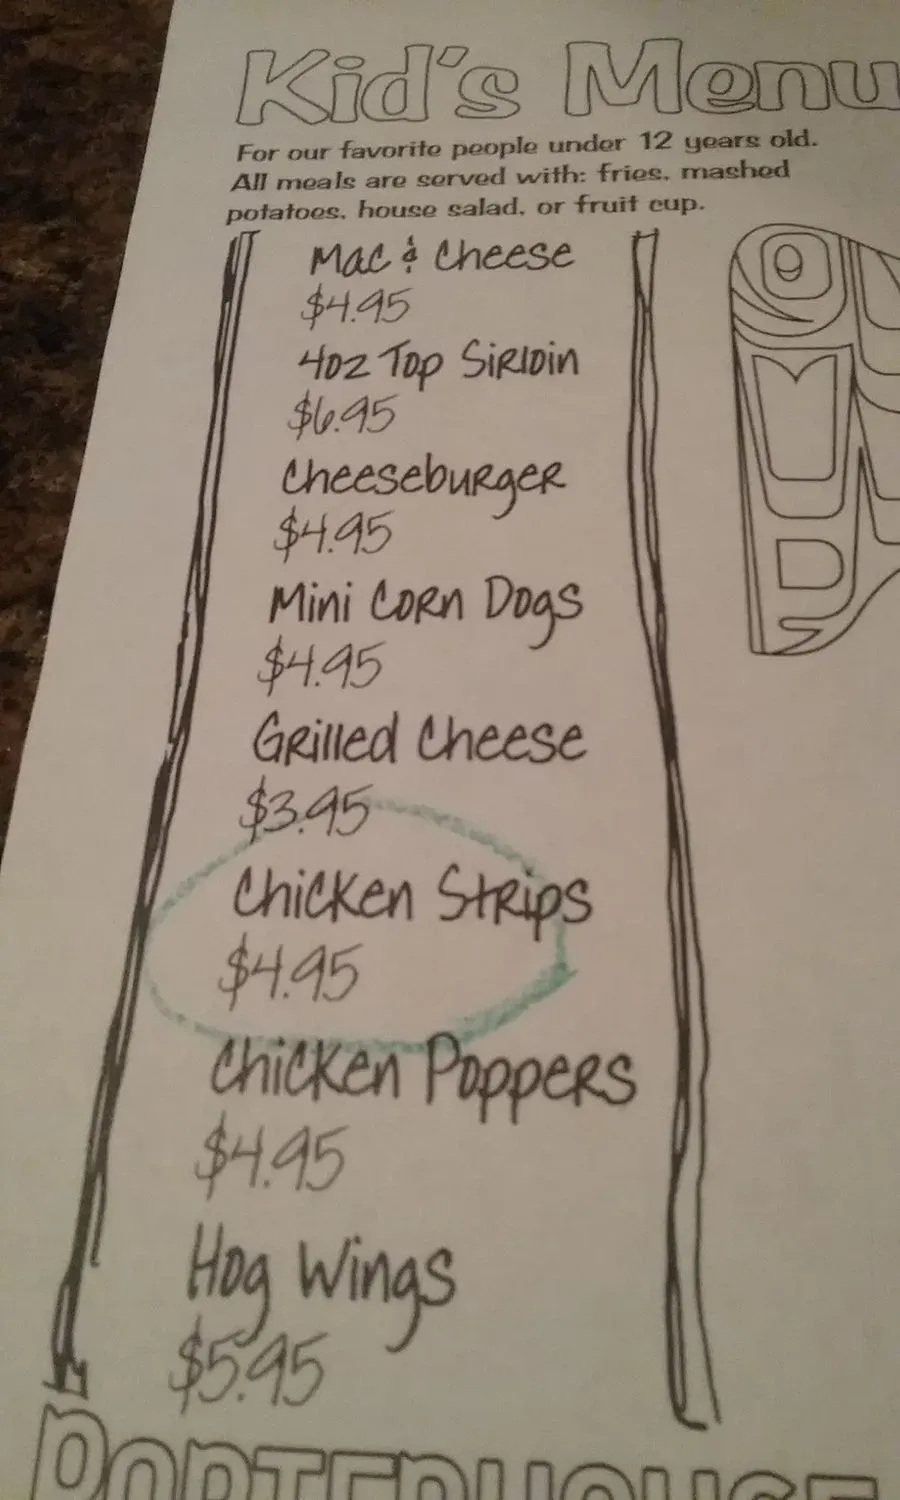 Kid's Menu
For our favorite people under 12 years old.
All meals are served with: fries, mashed
potatoes, house salad, or fruit cup.
Mac & Cheese
$4.95
4oz Top Sirloin
$6.95
Cheeseburger
$4.95
Mini Corn Dogs
$4.95
Grilled Cheese
$3.95
Chicken Strips
$4.95
Chicken Poppers
$4.95
Hog Wings
$5.95
PORTERHOUSE